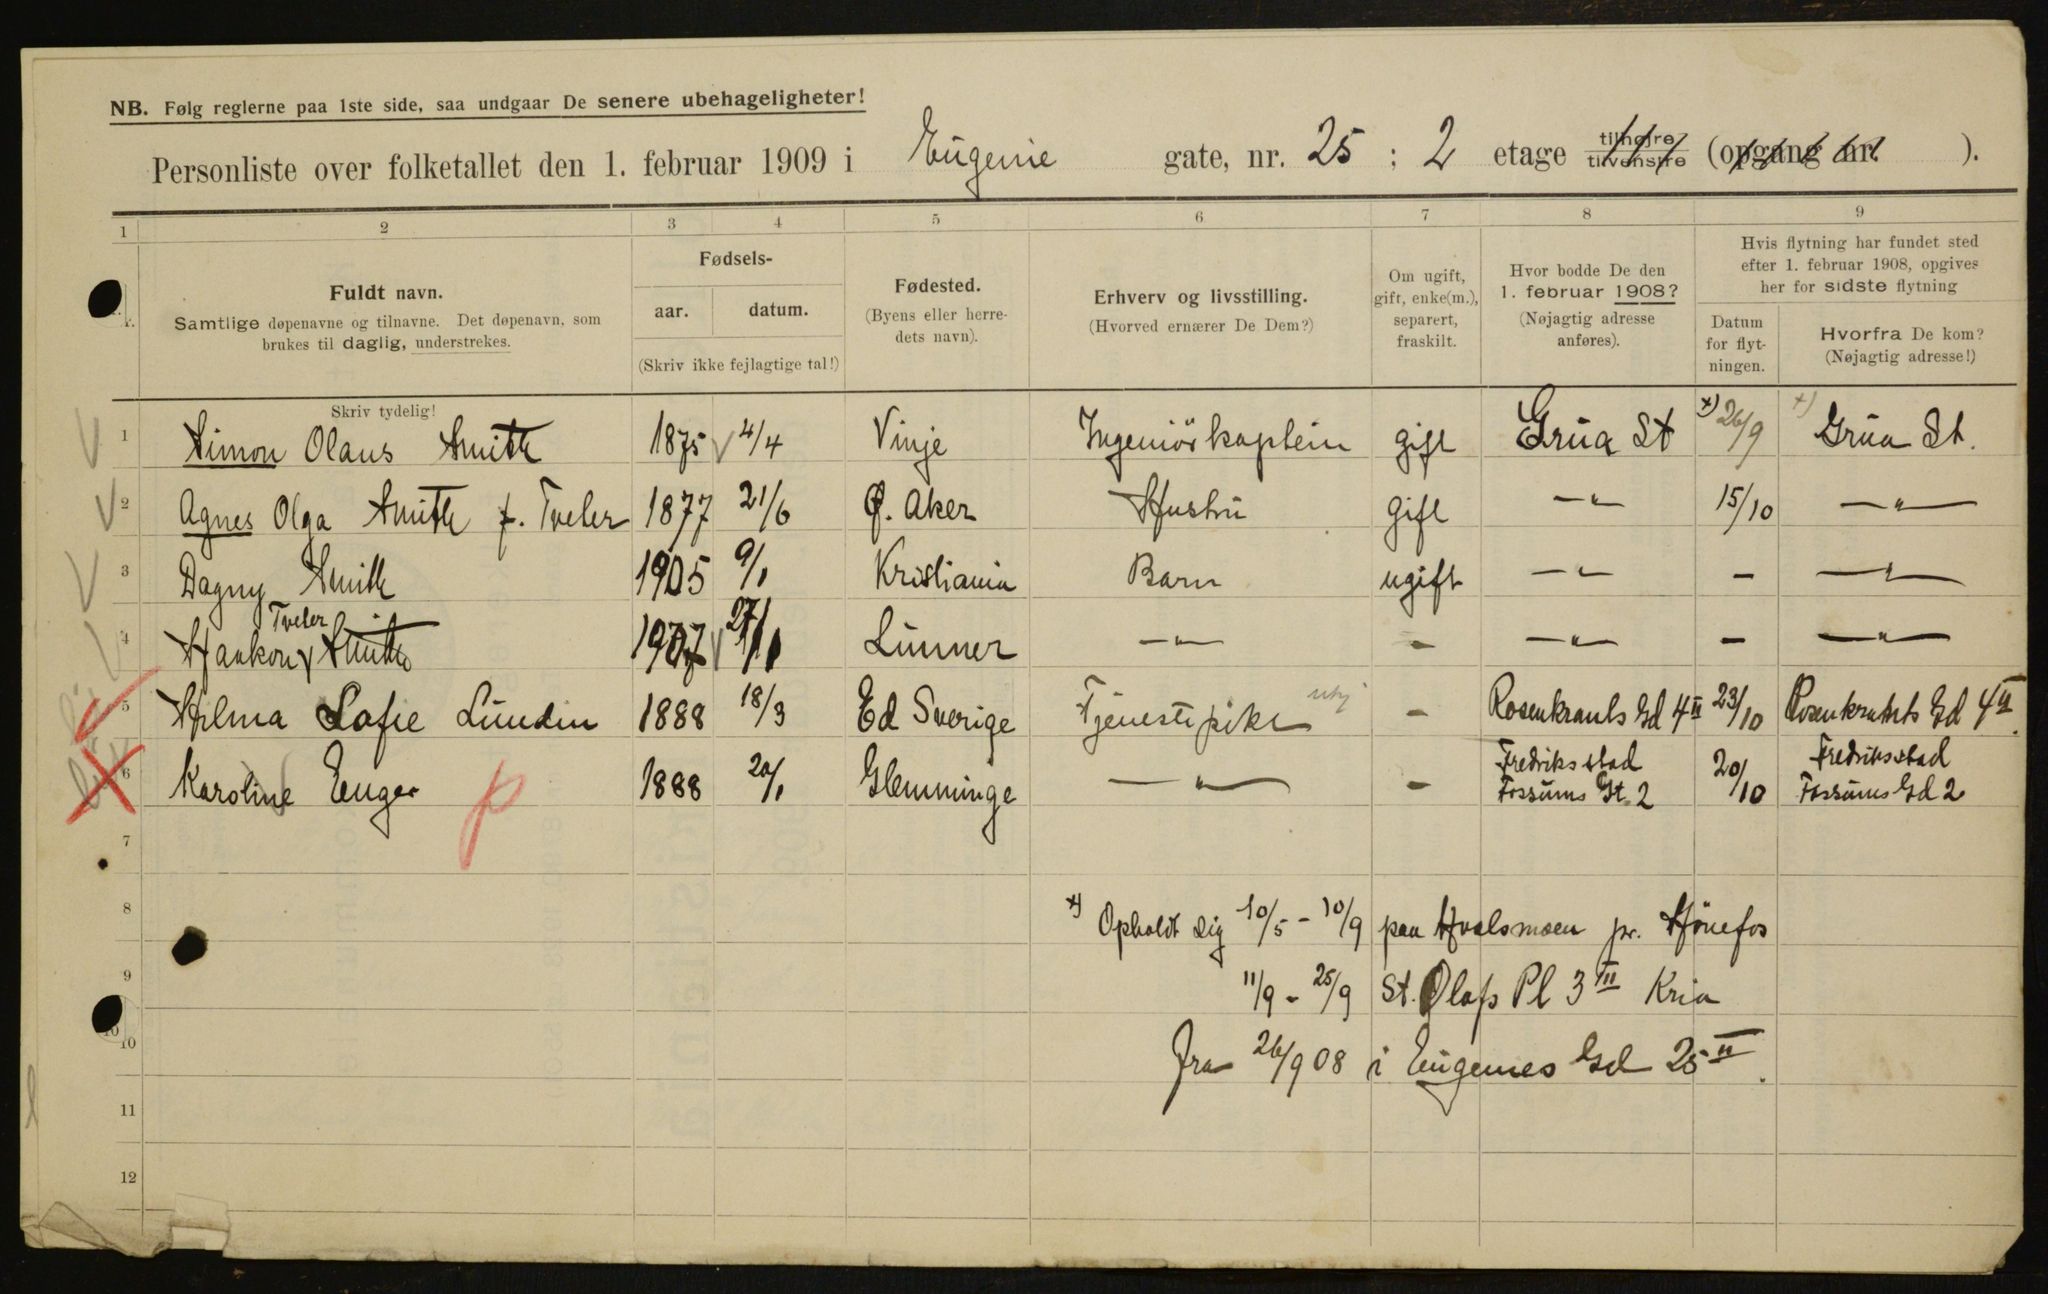 NB. Følg reglerne paa 1ste side, saa undgaar De senere ubehageligheter!
Personliste over folketallet den 1. februar 1909 i Eugenie gate, nr. 25 ; 2 etage tilhøjre tilvenstre (opgang nr. ).
1 2 3 4 5 6 7 8 9
Fuldt navn.
Samtlige døpenavne og tilnavne. Det døpenavn, som
brukes til daglig, understrekes.
Skriv tydelig!
Fødsels-
aar. datum.
(Skriv ikke fejlagtige tal!)
Fødested.
(Byens eller herre-
dets navn).
Erhverv og livsstilling.
(Hvorved ernærer De Dem?)
Om ugift,
gift, enke(m.),
separert,
fraskilt.
Hvor bodde De den
1. februar 1908?
(Nøjagtig adresse
anføres).
Hvis flytning har fundet sted
efter 1. februar 1908, opgives
her for sidste flytning
Datum
for flyt-
ningen.
Hvorfra De kom?
(Nøjagtig adresse!)
1 Simon Olaus Smith 1875 4/4 Vinje Ingeniörkaptein gift Grua St x) 26/9 x) Grua St.
2 Agnes Olga Smith f. Tveter 1877 21/6 Ø. Aker Hustru gift —"— 15/10 —"—
3 Dagny Smith 1905 9/1 Kristiania Barn ugift —"— - —"—
Tveter
4 Haakon Smith 1907 27/1 Lunner —"— - —"— - —"—
5 Hilma Sofie Lundin 1888 18/3 Ed Sverige Tjenestepike - Rosenkrants Gd 4 II 23/10 Rosenkrants Gd 4 II.
6 Karoline Enger p 1888 20/1 Glemminge —"— - Fredriksstad Fossums Gt. 2 20/10 Fredriksstad Fossums Gd 2
7
8
9
10
11
12
x) Opholdt sig 10/5 - 10/9 paa Hvalsmoen pr. Hönefos
11/9 - 25/9 St. Olafs Pl 3 III Kria
fra 26/9 08 i Eugenies Gd 25 II.